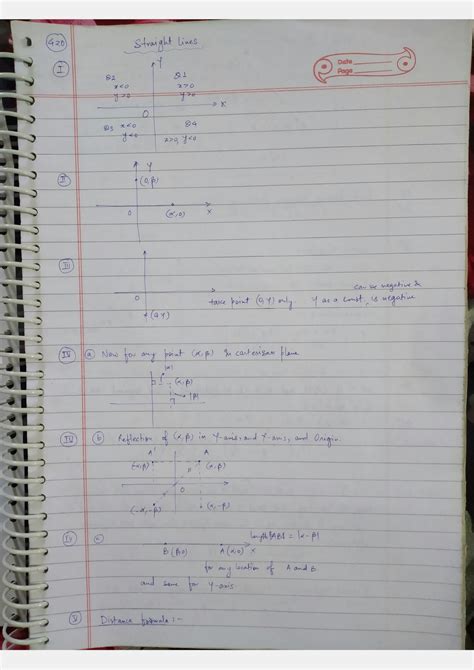 G20
Straight Lines
Date
Page
I
Y
Q2
Q1
x<0
x>0
y>0
y>0
X
O
Q3 x<0
Q4
y<0
x>0, y<0
II
Y
(0,β)
O
(α,0)
X
III
can be negative &
O
take point (0,γ) only. γ as a const, is negative
(0,γ)
IV a Now for any point (α,β) in cartesian plane
|α|
(α,β)
|β|
IV b Reflection of (α,β) in Y-axis and X-axis, and Origin.
A'
A
(-α,β)
(α,β)
O
(-α,-β)
(α,-β)
IV c
length|AB| = |α-β|
B(β,0)
A(α,0)
X
for any location of A and B
and same for Y-axis
V Distance formula :-